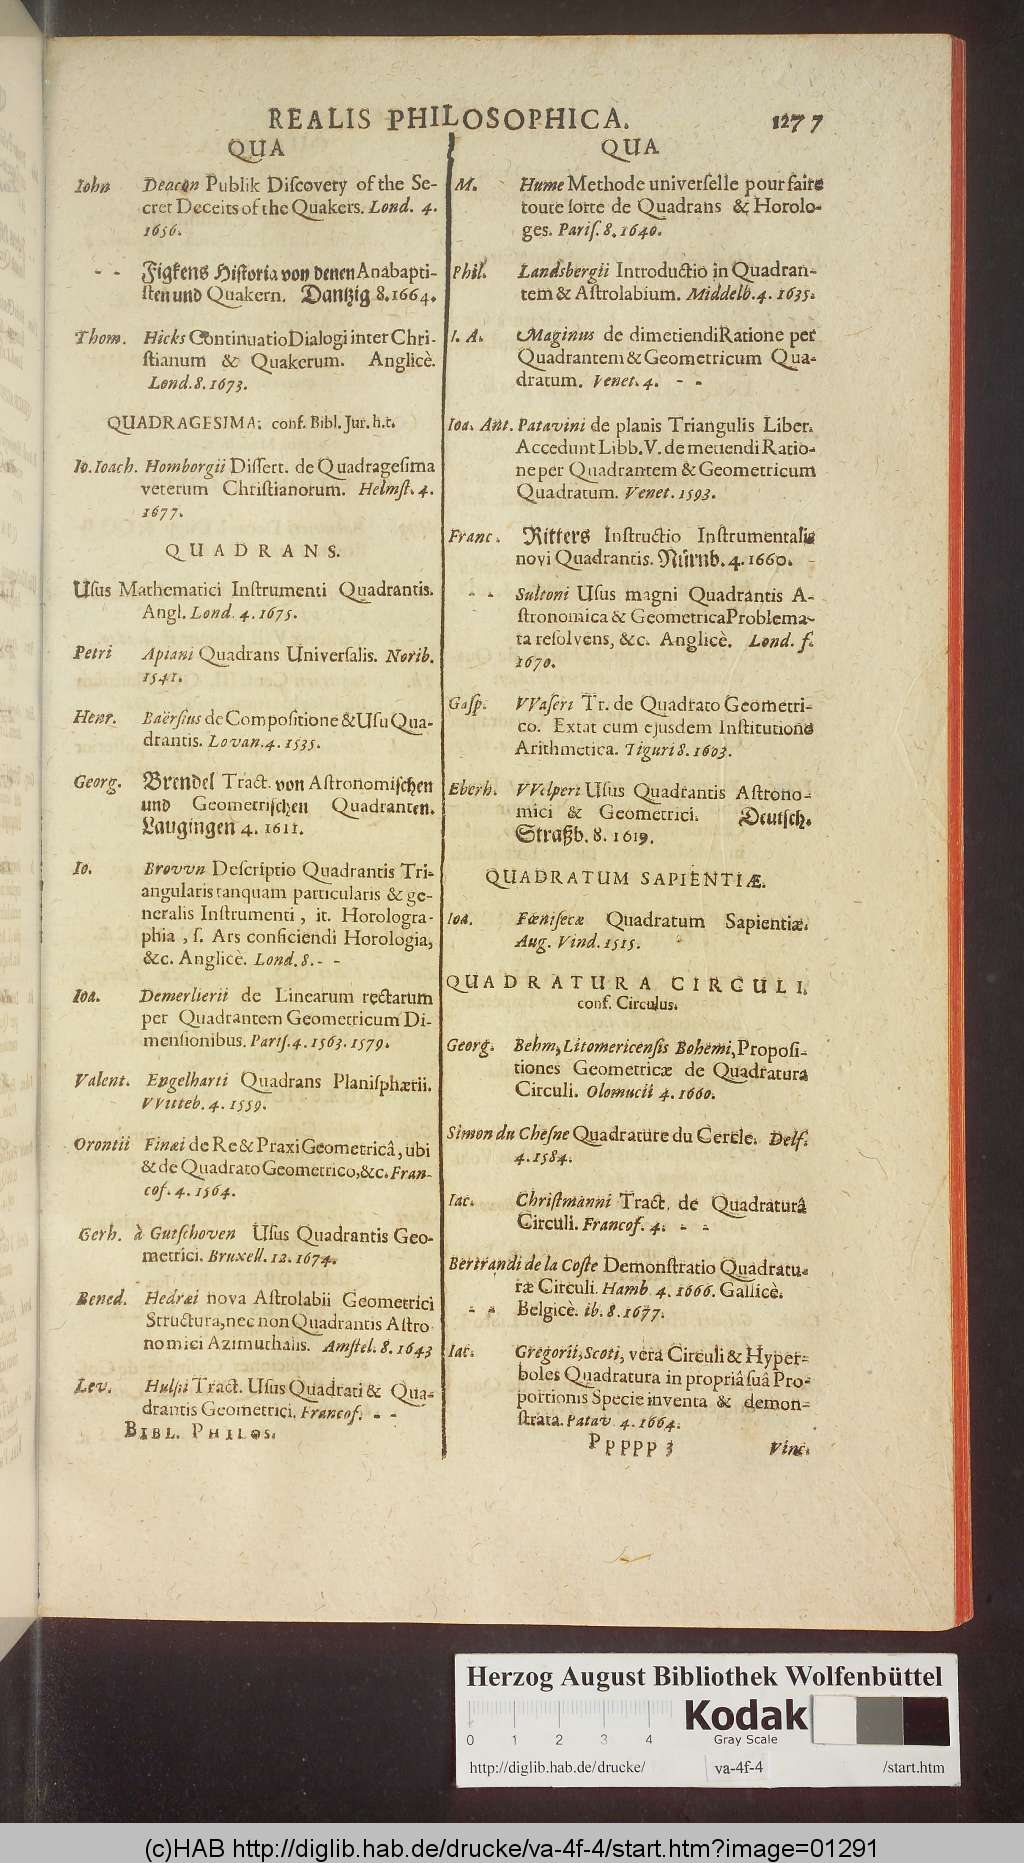 REALIS PHILOSOPHICA. 1277
QUA
Iohn Deacon Publik Diſcovery of the Se-
cret Deceits of the Quakers. Lond. 4.
1656.
- - Figkens Hiſtoria von denen Anabapti-
ſten und Quakern. Dantzig 8. 1664.
Thom. Hicks Continuatio Dialogi inter Chri-
ſtianum & Quakerum. Anglicè.
Lond. 8. 1673.
QUADRAGESIMA; conf. Bibl. Jur. h.t.
Io. Ioach. Homborgii Diſſert. de Quadrageſima
veterum Chriſtianorum. Helmſt. 4.
1677.
QUADRANS.
Uſus Mathematici Inſtrumenti Quadrantis.
Angl. Lond. 4. 1675.
Petri Apiani Quadrans Univerſalis. Norib.
1541.
Henr. Baërſius de Compoſitione & Uſu Qua-
drantis. Lovan. 4. 1535.
Georg. Brendel Tract. von Aſtronomiſchen
und Geometriſchen Quadranten.
Laugingen 4. 1611.
Io. Brovvn Deſcriptio Quadrantis Tri-
angularis tanquam particularis & ge-
neralis Inſtrumenti, it. Horologra-
phia, ſ. Ars conficiendi Horologia,
&c. Anglicè. Lond. 8. - -
Ioa. Demerlierii de Linearum rectarum
per Quadrantem Geometricum Di-
menſionibus. Pariſ. 4. 1563. 1579.
Valent. Engelharti Quadrans Planiſphærii.
VVitteb. 4. 1559.
Orontii Finæi de Re & Praxi Geometricâ, ubi
& de Quadrato Geometrico, &c. Fran-
cof. 4. 1564.
Gerh. à Gutſchoven Uſus Quadrantis Geo-
metrici. Bruxell. 12. 1674.
Bened. Hedræi nova Aſtrolabii Geometrici
Structura, nec non Quadrantis Aſtro
nomici Azimuthalis. Amſtel. 8. 1643
Lev. Hulſii Tract. Uſus Quadrati & Qua-
drantis Geometrici. Francof. - -
BIBL. PHILOS.
QUA
M. Hume Methode univerſelle pour faire
toute ſorte de Quadrans & Horolo-
ges. Pariſ. 8. 1640.
Phil. Landsbergii Introductio in Quadran-
tem & Aſtrolabium. Middelb. 4. 1635.
I. A. Maginus de dimetiendi Ratione per
Quadrantem & Geometricum Qua-
dratum. Venet. 4. - -
Ioa. Ant. Patavini de planis Triangulis Liber.
Accedunt Libb. V. de metiendi Ratio-
ne per Quadrantem & Geometricum
Quadratum. Venet. 1593.
Franc. Ritters Inſtructio Inſtrumentalis
novi Quadrantis. Nürnb. 4. 1660.
- - Suttoni Uſus magni Quadrantis A-
ſtronomica & Geometrica Problema-
ta reſolvens, &c. Anglicè. Lond. f.
1670.
Gaſp. VVaſeri Tr. de Quadrato Geometri-
co. Extat cum ejusdem Inſtitutione
Arithmetica. Tiguri 8. 1603.
Eberh. VVelperi Uſus Quadrantis Aſtrono-
mici & Geometrici. Deutſch.
Straßb. 8. 1619.
QUADRATUM SAPIENTIÆ.
Ioa. Fœniſecæ Quadratum Sapientiæ.
Aug. Vind. 1515.
QUADRATURA CIRCULI,
conf. Circulus.
Georg. Behm, Litomericenſis Bohemi, Propoſi-
tiones Geometricæ de Quadratura
Circuli. Olomucii 4. 1660.
Simon du Cheſne Quadrature du Cercle. Delf.
4. 1584.
Iac. Chriſtmanni Tract. de Quadraturâ
Circuli. Francof. 4. - -
Bertrandi de la Coſte Demonſtratio Quadratu-
ræ Circuli. Hamb. 4. 1666. Gallicè.
- - Belgicè. ib. 8. 1677.
Iac. Gregorii, Scoti, vera Circuli & Hyper-
boles Quadratura in propriâ ſuâ Pro-
portionis Specie inventa & demon-
ſtrata. Patav. 4. 1664.
Ppppp 3 Vinc.
Herzog August Bibliothek Wolfenbüttel
0 1 2 3 4
Kodak
Gray Scale
http://diglib.hab.de/drucke/ va-4f-4 /start.htm
(c)HAB http://diglib.hab.de/drucke/va-4f-4/start.htm?image=01291